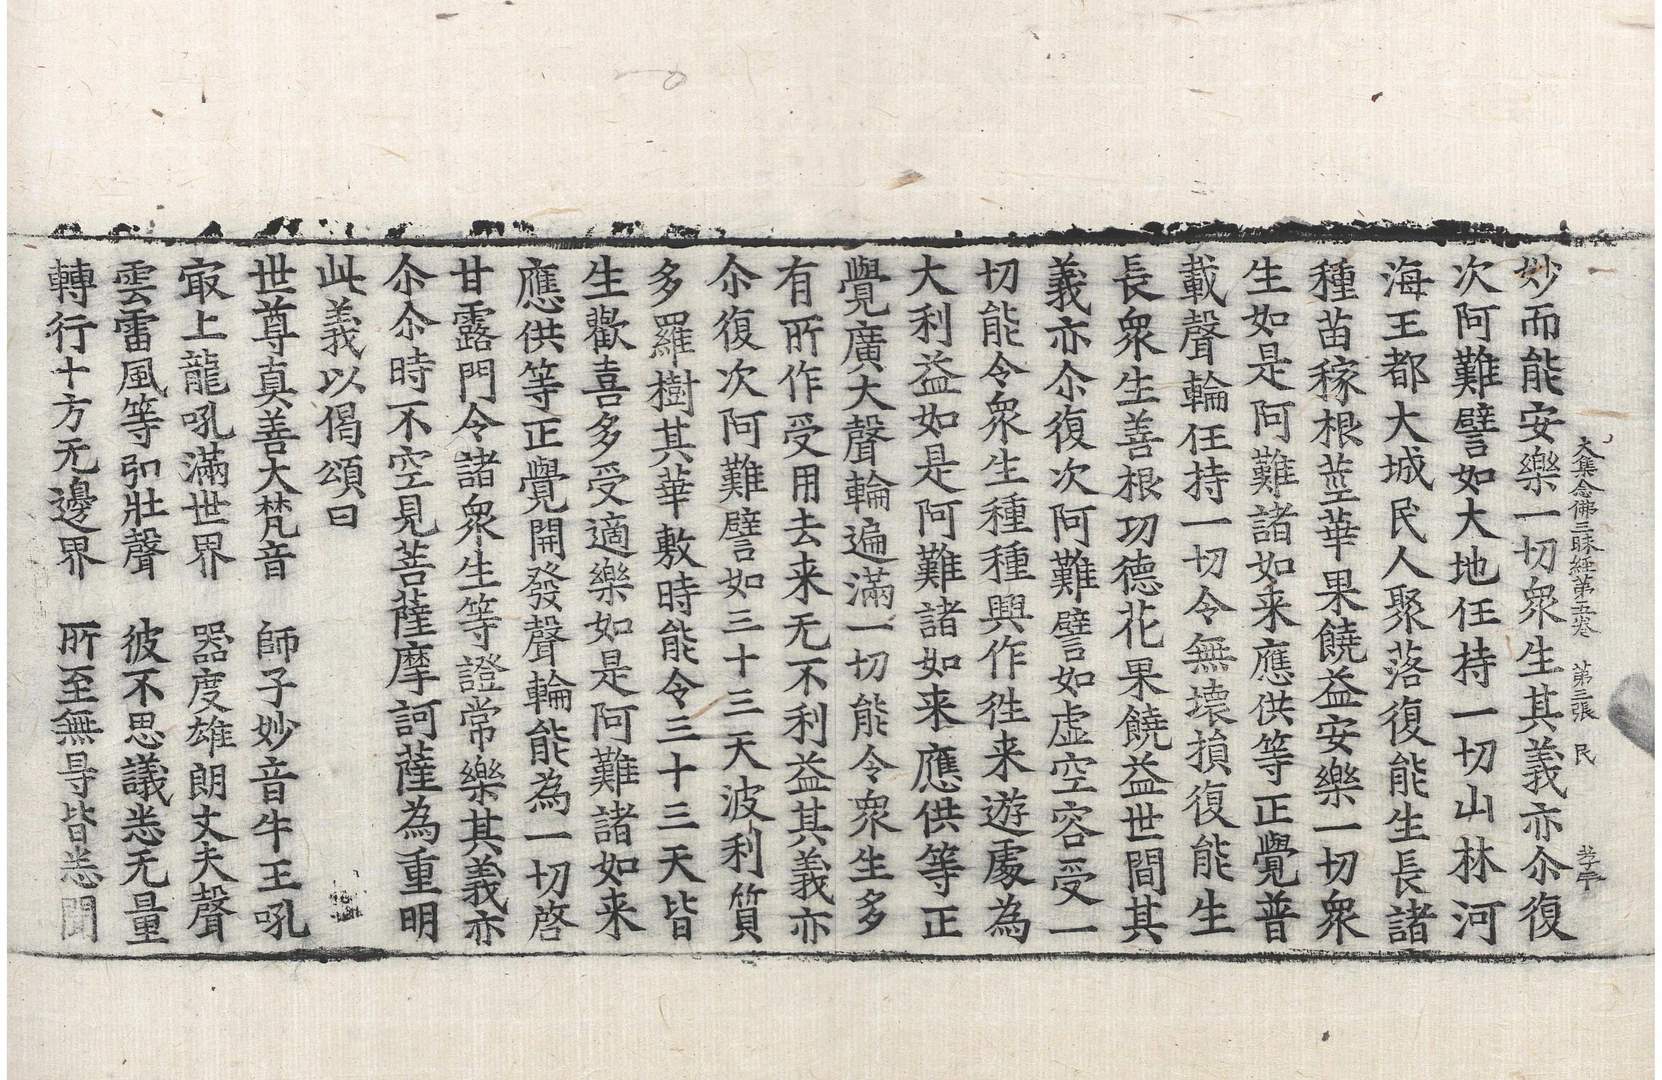 大集念佛三昧經第五卷　第三張　民
妙而能安樂一切衆生其義亦尒復
次阿難譬如大地任持一切山林河
海王都大城民人聚落復能生長諸
種苗稼根莖華果饒益安樂一切衆
生如是阿難諸如来應供等正覺普
載聲輪任持一切令無壞損復能生
長衆生善根功德花果饒益世間其
義亦尒復次阿難譬如虛空容受一
切能令衆生種種興作往来遊處為
大利益如是阿難諸如来應供等正
覺廣大聲輪遍滿一切能令衆生多
有所作受用去来无不利益其義亦
尒復次阿難譬如三十三天波利質
多羅樹其華敷時能令三十三天皆
生歡喜多受適樂如是阿難諸如来
應供等正覺開發聲輪能為一切啓
甘露門令諸衆生等證常樂其義亦
尒尒時不空見菩薩摩訶薩為重明
此義以偈頌曰
世尊真善大梵音　師子妙音牛王吼
㝡上龍吼滿世界　器度雄朗丈夫聲
雲雷風等弘壯聲　彼不思議悉无量
轉行十方无邊界　所至無㝵皆悉聞